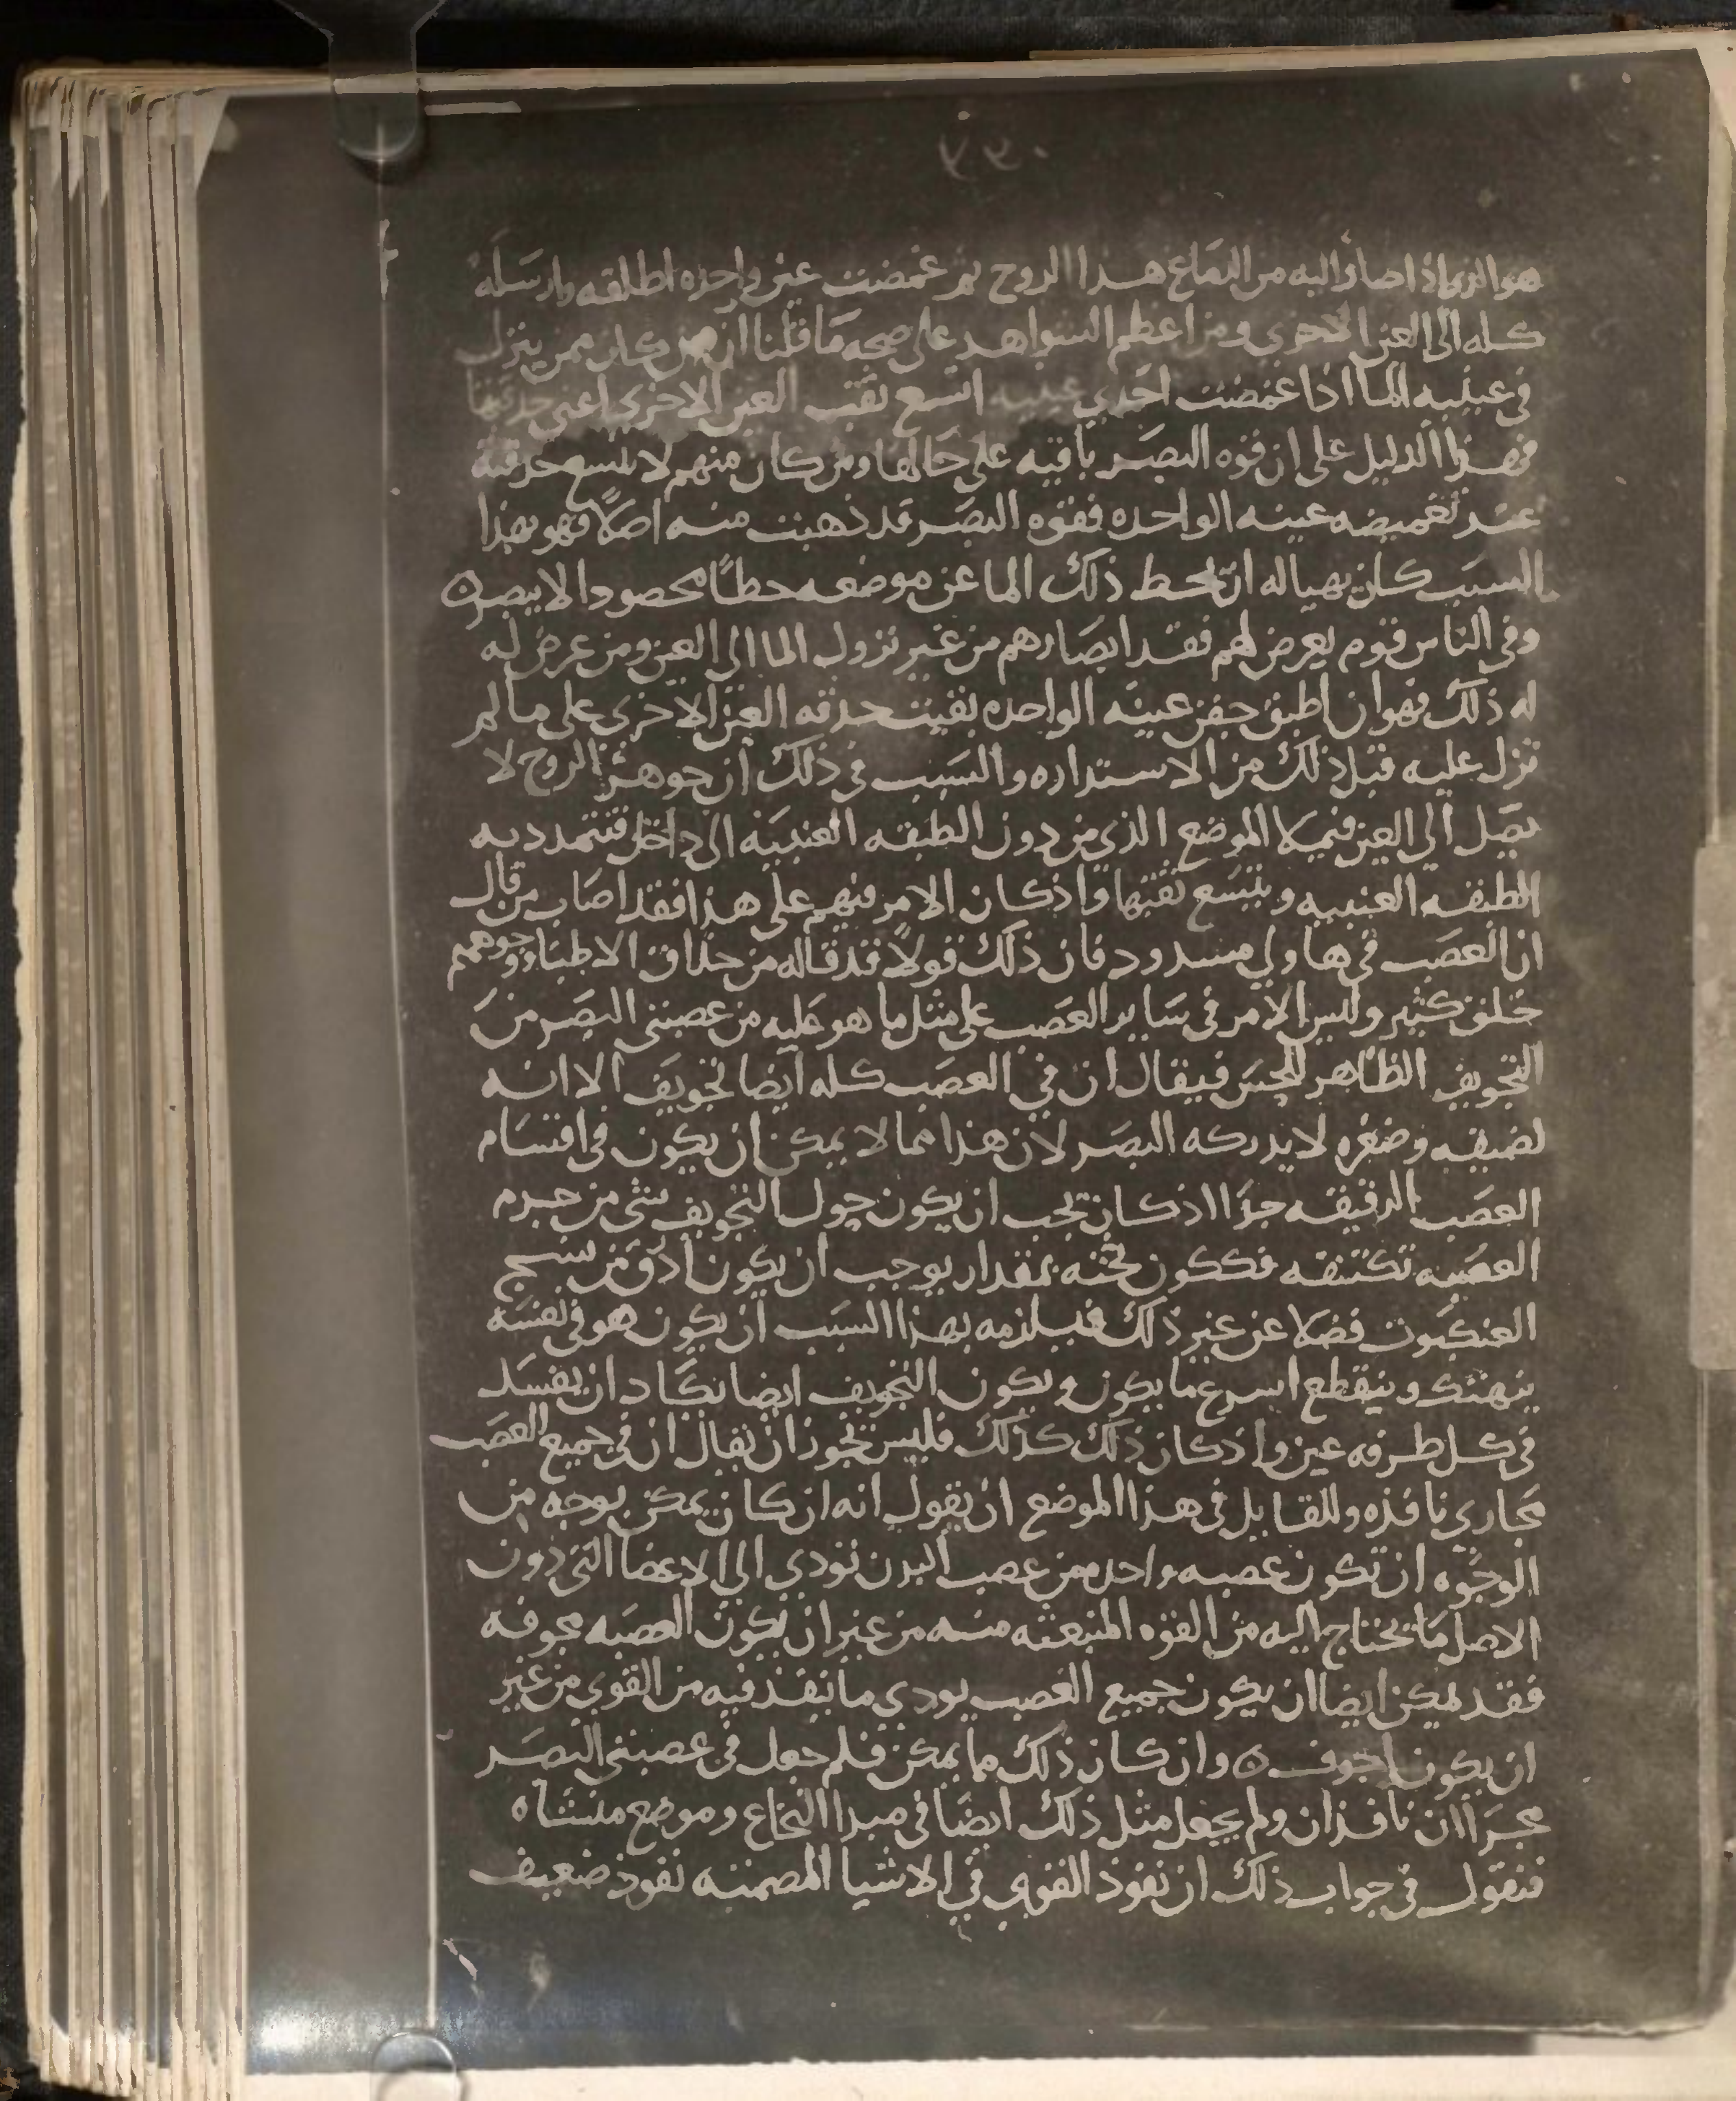 هو الذى اذا صار اليه من الدماغ هذا الروح ثم غمضت عين واحده اطلقه وارسله
كله الى العين الاخرى ومن اعظم الشواهد على صحه ما قلنا ان من كان ممن ينزل
فى عينيه الما اذا غمضت احدى عينيه اتسع ثقب العين الاخرى اعنى حدقتها
فهذا الدليل على ان قوه البصر باقيه على حالها ومن كان منهم لا تتسع حدقته
عند تغميضه عينه الواحده فقوه البصر قد ذهبت منه اصلا فهو بهذا
السبب كان يهيا له ان يحط ذلك الما عن موضعه حطا محصودا لا يبصر ه
وفى الناس قوم يعرض لهم فقد ابصارهم من غير نزول الما الى العين ومن عرض له
له ذلك فهو ان اطبق جفن عينه الواحده بقيت حدقه العين الاخرى على ما لم
تزل عليه قبل ذلك من الاستداره والسبب فى ذلك ان جوهر الروح لا
يصل الى العين فيملا الموضع الذى من دون الطبقه العنبيه الى داخل فتتمدد به
الطبقه العنبيه ويتسع ثقبها واذ كان الامر فيهم على هذا فقد اصاب من قال
ان العصب فى هاولى مسدود فان ذلك قولا قد قاله من حذاق الاطبا ووجوههم
خلق كثير وليس الامر فى ساير العصب على مثل ما هو عليه من عصبتى البصر من
التجويف الظاهر للحس فيقال ان فى العصب كله ايضا تجويف الا انه
لضيقه وصغره لا يدركه البصر لان هذا مما لا يمكن ان يكون فى اقتسام
العصب الدقيقه جدا اذ كان يجب ان يكون حول التجويف شى من جرم
العصبه تكتنفه فككون ثخنه بمقدار يوجب ان يكون ادق من نسج
العنكبوت فضلا عن غير ذلك فيلزمه بهذا السبب ان يكون هو فى نفسه
ينهتك وينقطع اسرع ما يكون ويكون التجويف ايضا يكاد ان يفسد
فى كل طرفه عين واذ كان ذلك كذلك فليس يجوز ان يقال ان فى جميع العصب
مجارى نافذه وللقايل فى هذا الموضع ان يقول انه ان كان يمكن بوجه من
الوجوه ان تكون عصبه واحده من عصب البدن تودى الى الاعضا التى دون
الاصل ما يحتاج اليه من القوه المنبعثه منه من غير ان يكون العصبه مجوفه
فقد يمكن ايضا ان يكون جميع العصب يودى ما ينفذ فيه من القوى من غير
ان يكون اجوف ه وان كان ذلك ما يمكن فلم جعل فى عصبتى البصر
مجراان نافذان ولم يجعل مثل ذلك ايضا فى مبدا النخاع وموضع منشاه
فنقول فى جواب ذلك ان نفوذ القوى فى الاشيا المصمته نفوذ ضعيف